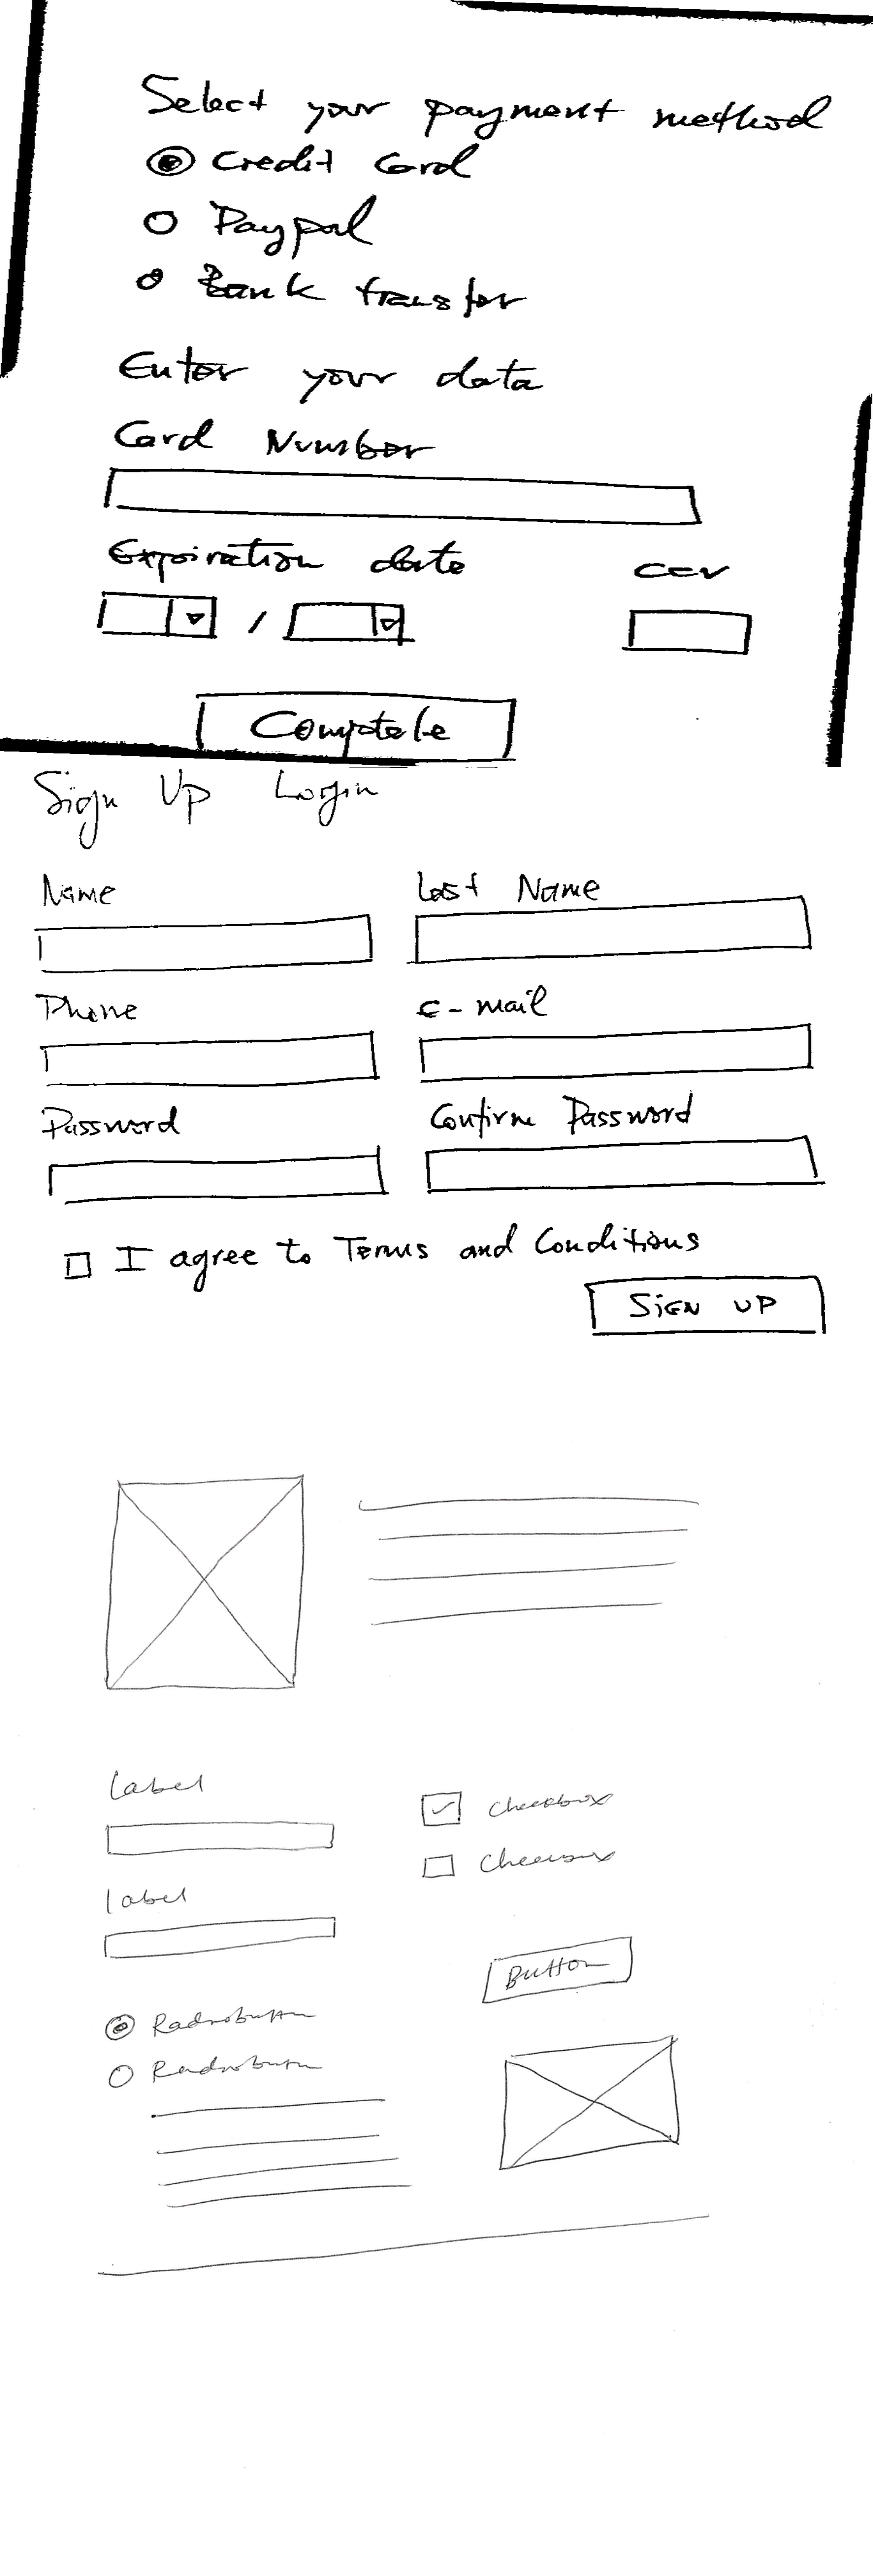 Select your payment method
Credit Card
Paypal
Bank transfer
Enter your data
Card Number
Expiration date CCV
/
Complete
Sign Up Login
Name Last Name
Phone e-mail
Password Confirm Password
I agree to Terms and Conditions
SIGN UP
Label
Checkbox
Checkbox
label
Button
Radiobutton
Radiobutton